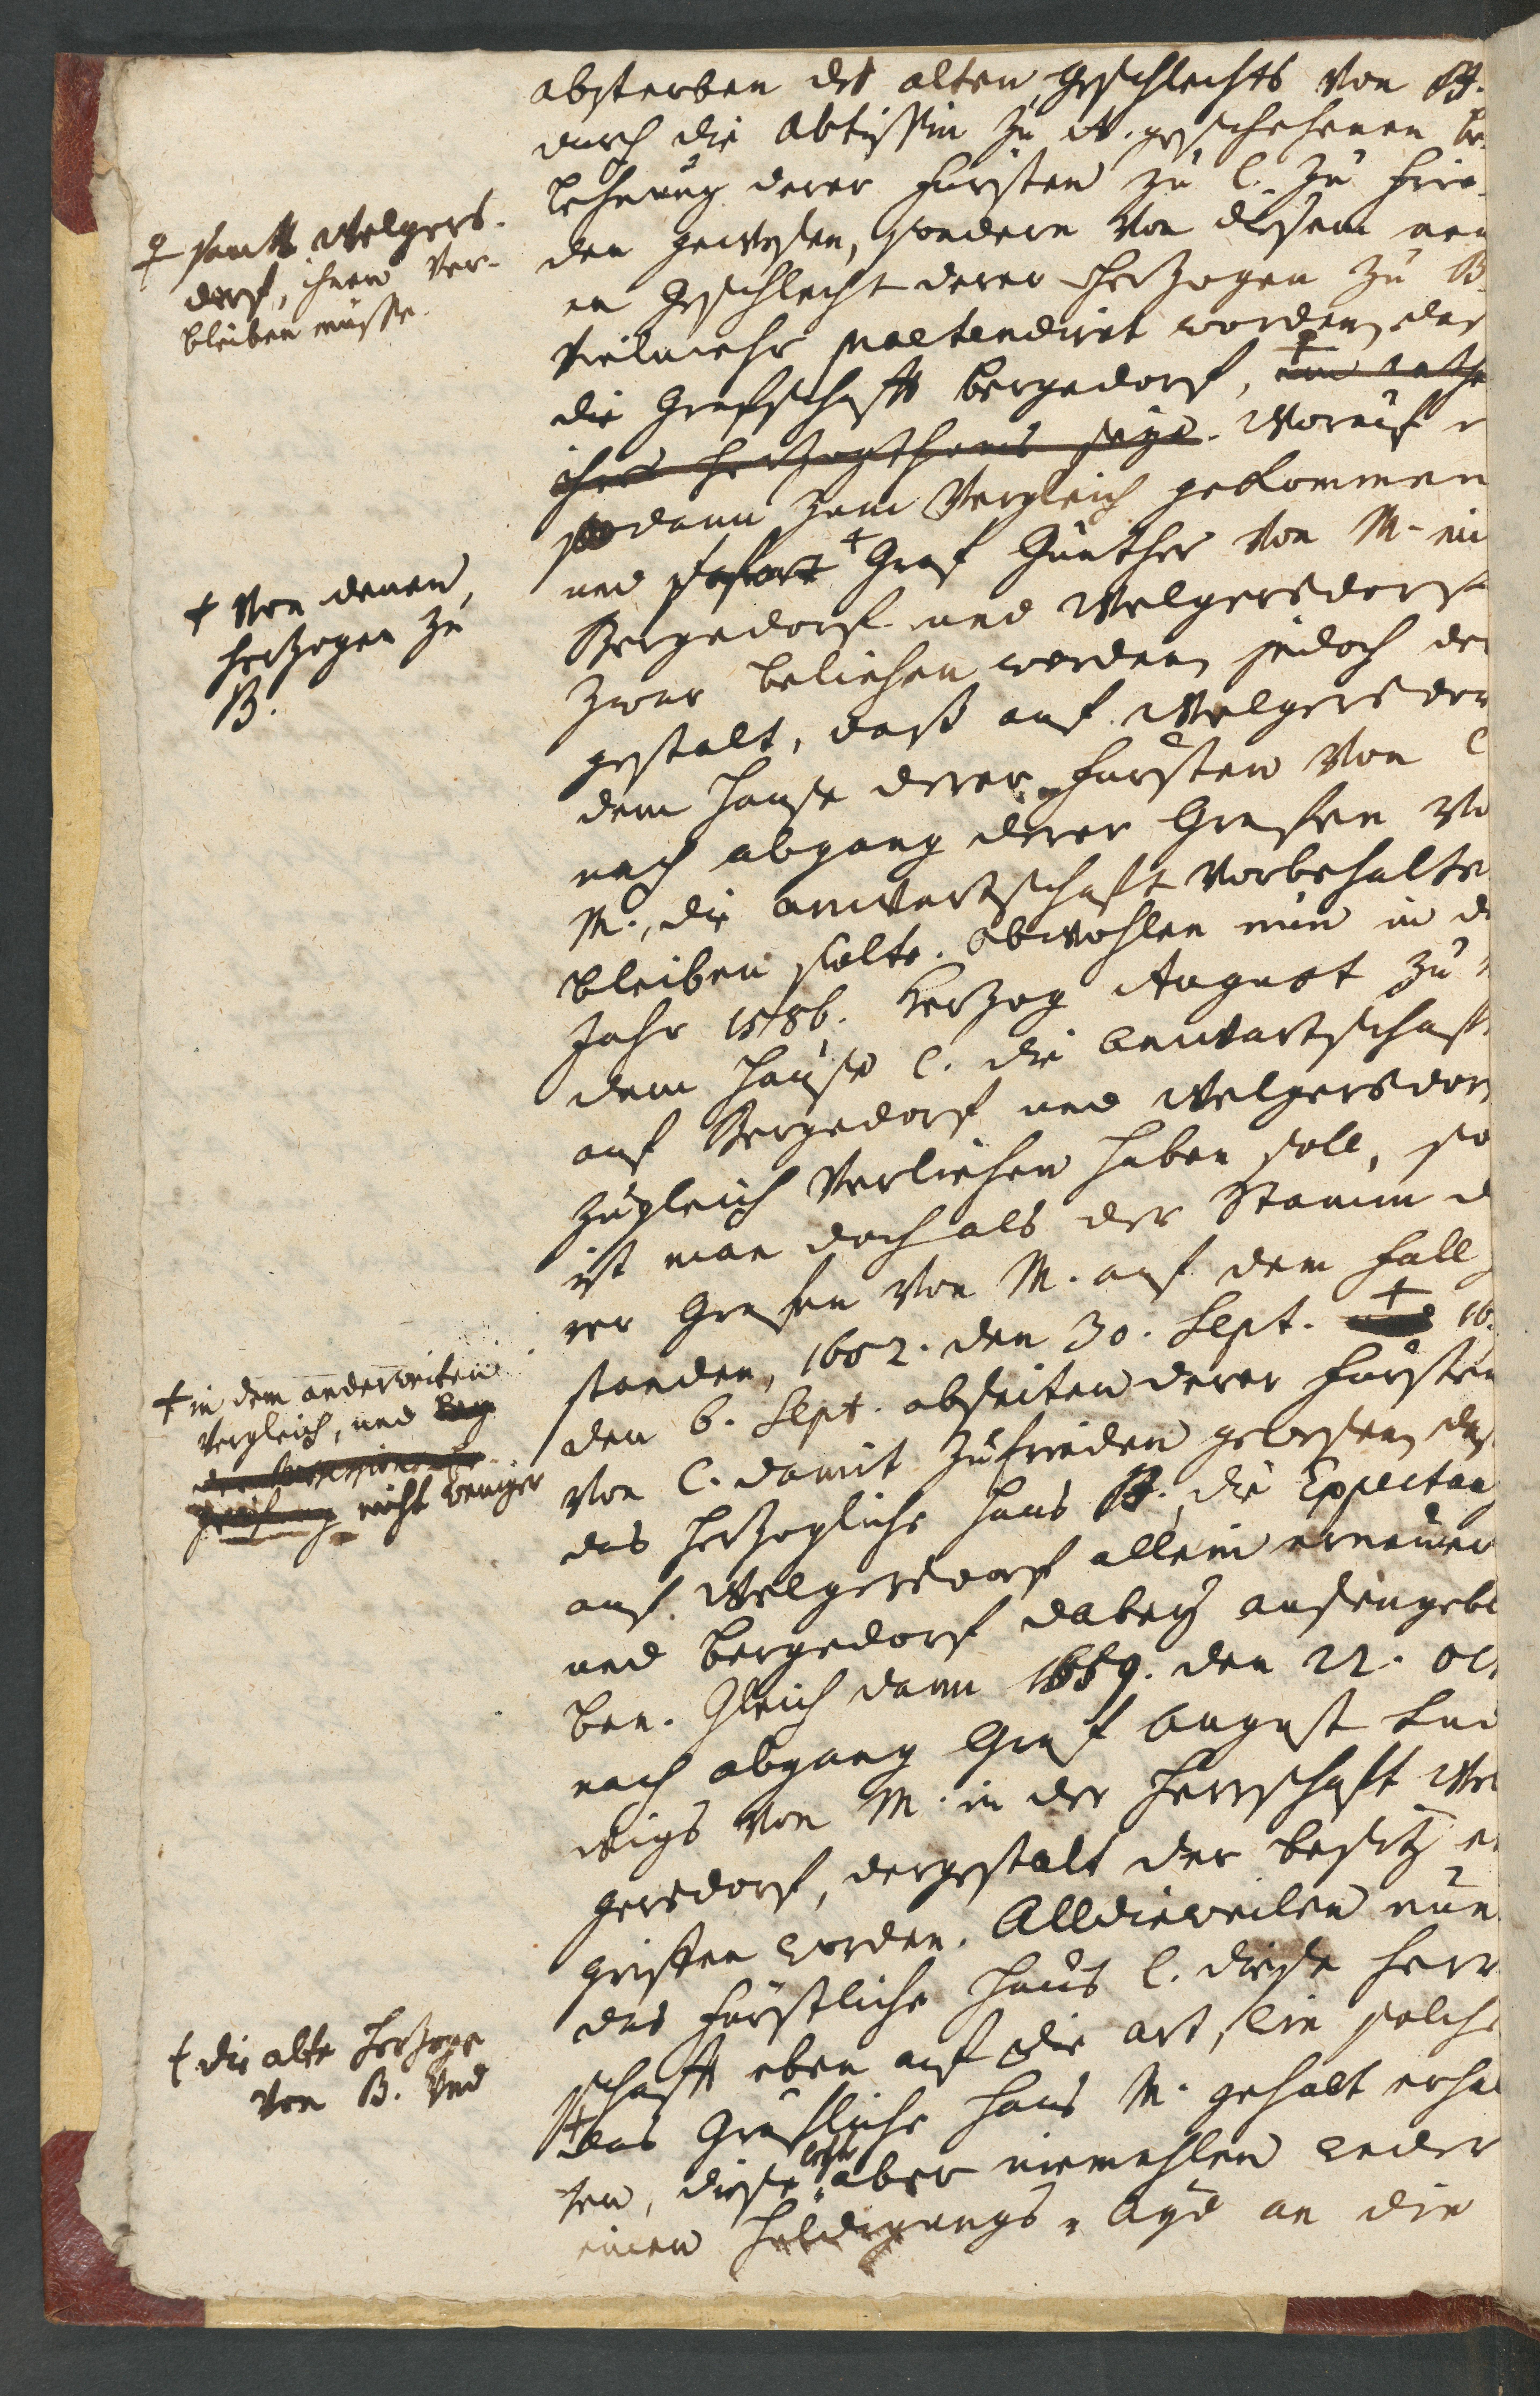 absterben des alten Geschlechts von B.
durch die Abtissin zu N. geschehenen be-
lehnung derer Fürsten zu C. zu frie-
den gewesen, sondern von diesem neu
en Geschlecht derer Hertzogen zu B.
vielmehr praetendirt worden, daß
die Grafschafft Bergedorf, ‡
ihres Hertzogthums seye. Worauf
sodann zum Vergleich gekommen
und sofort + Graf Günther von M. mi
Bergedorf und Welgersdorf
zwar beliehen worden, jedoch der
gestalt, daß auf Welgersdor
dem Hause derer Fürsten von C
nach abgang derer Grafen vo
M., die anwartschafft vorbehalte
bleiben solte. Obwohlen nun in de
Jahr 1586. Hertzog August zu
dem Hause C. die Anwartschaft
auf Bergedorf und Welgersdor
zugleich verliehen haben soll, so
ist man doch als der Stamm d
rer Grafen von M. auf dem fall ge
standen, 1682. den 30. Sept. + 16
den 6. Sept. abseiten derer Fürsten
von C. damit zufrieden gewesen, daß
das Hertzogliche Haus B. die Expectan
auf Welgersdorf allein erneuer
und Bergedorf dabey aussengeb
ben. Gleich dann 1659. den 22. Oc
nach abgang Graf August Lud
wigs von M. in der Herrschaft Wel
gersdorf, dergestalt der besitz er
griffen worden. Alldieweilen nun
das Fürstliche Haus C. diese Herr
schafft eben auf die art, wie solche
+ das Gräfliche Haus M. gehabt erhal
ten, diese aber niemahlen weder
einen Huldigungs-Ayd an die
‡ samt Welgers-
dorf, ihnen ver-
bleiben müsse.
+ von denen
Hertzogen zu
B.
+ in dem anderweiten
Vergleich, und
nicht weniger
+ die alte Hertzoge
von B. und